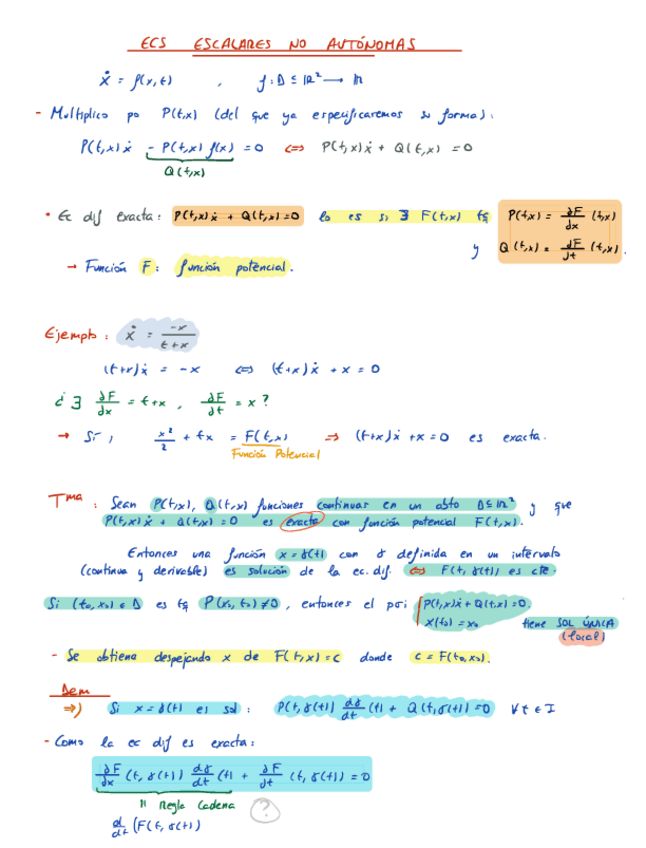 ECS ESCALARES NO AUTÓNOMAS
ẋ = f(x,t) , f: D ⊆ ℝ² → ℝ
- Multiplico po P(t,x) (del que ya especificaremos su forma):
P(t,x)ẋ - P(t,x) f(x) = 0 ⇔ P(t,x)ẋ + Q(t,x) = 0
Q(t,x)
• Ec dif exacta: P(t,x)ẋ + Q(t,x) = 0 lo es si ∃ F(t,x) tq P(t,x) = ∂F/dx (t,x)
y Q(t,x) = ∂F/∂t (t,x).
→ Función F: función potencial.
Ejemplo: ẋ = -x/t+x
(t+x)ẋ = -x ⇔ (t+x)ẋ + x = 0
¿∃ ∂F/dx = t+x , ∂F/dt = x?
→ Sí, x²/2 + tx = F(t,x) ⇒ (t+x)ẋ + x = 0 es exacta.
Función Potencial
Tma: Sean P(t,x), Q(t,x) funciones continuas en un abto D ⊆ ℝ² y que
P(t,x)ẋ + Q(t,x) = 0 es exacta con función potencial F(t,x).
Entonces una función x = γ(t) con γ definida en un intervalo
(continua y derivable) es solución de la ec. dif. ⇔ F(t, γ(t)) es cte.
Si (t₀, x₀) ∈ D es tq P(x₀, t₀) ≠ 0, entonces el pvi P(t,x)ẋ + Q(t,x) = 0
x(t₀) = x₀ tiene SOL ÚNICA
(local)
- Se obtiene despejando x de F(t,x) = c donde c = F(t₀, x₀).
Dem
⇒) Si x = γ(t) es sol: P(t, γ(t)) dγ/dt (t) + Q(t, γ(t)) = 0 ∀ t ∈ I
- Como la ec dif es exacta:
∂F/dx (t, γ(t)) dγ/dt (t) + ∂F/∂t (t, γ(t)) = 0
|| Regla Cadena ?
d/dt (F(t, γ(t))